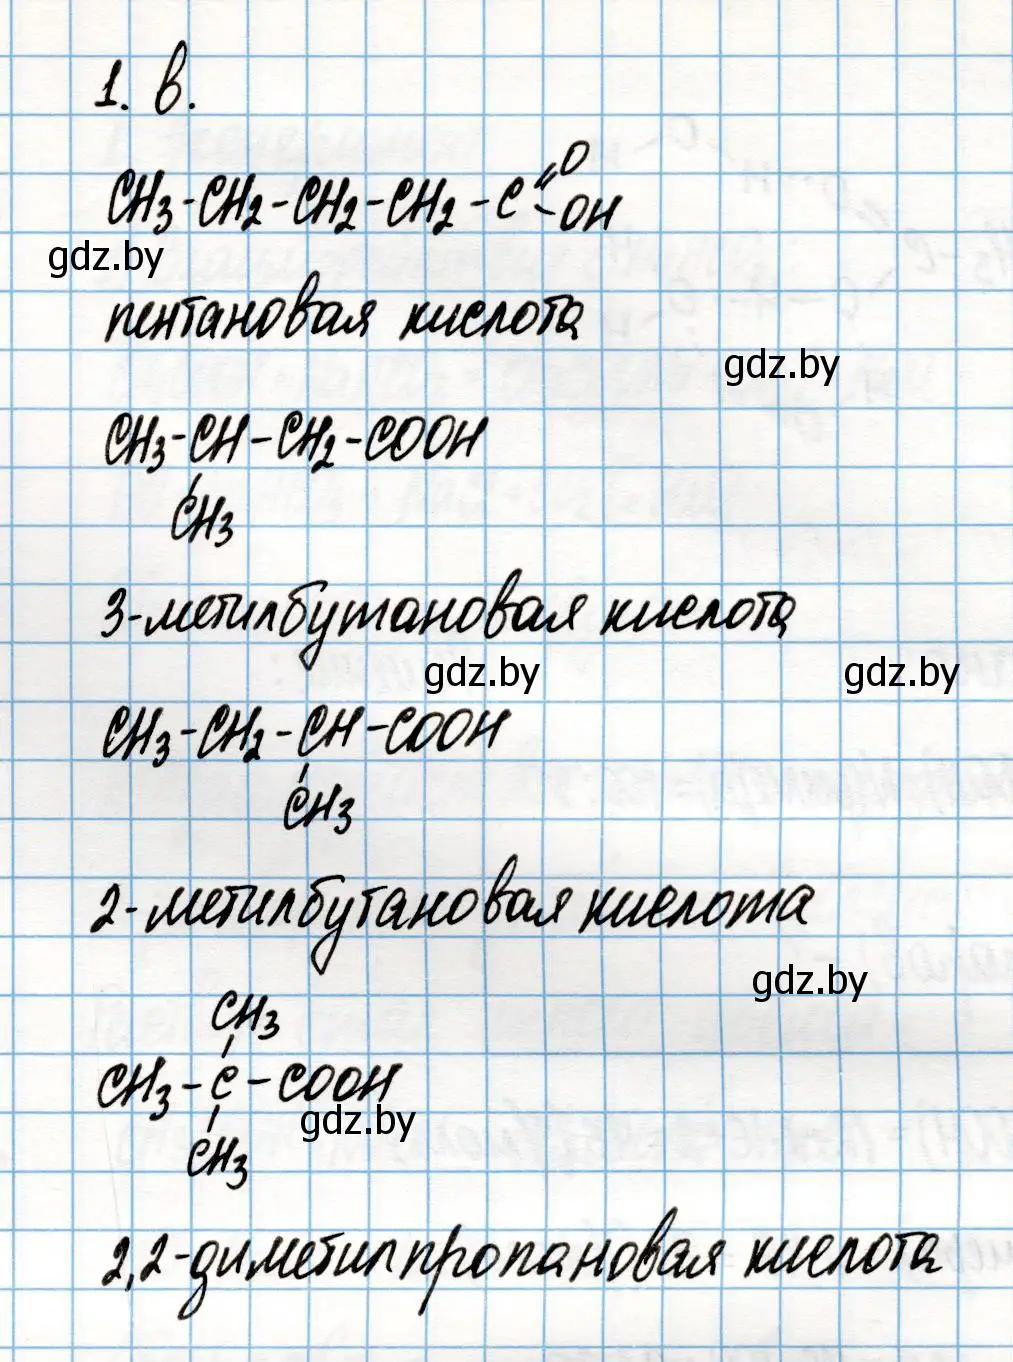 1. в.
CH3-CH2-CH2-CH2-C
=O
-OH
gdz.by
пентановая кислота
gdz.by
CH3-CH-CH2-COOH
CH3
3-метилбутановая кислота
gdz.by
gdz.by
CH3-CH2-CH-COOH
CH3
2-метилбутановая кислота
gdz.by
CH3
CH3-C-COOH
gdz.by
CH3
2,2-диметилпропановая кислота